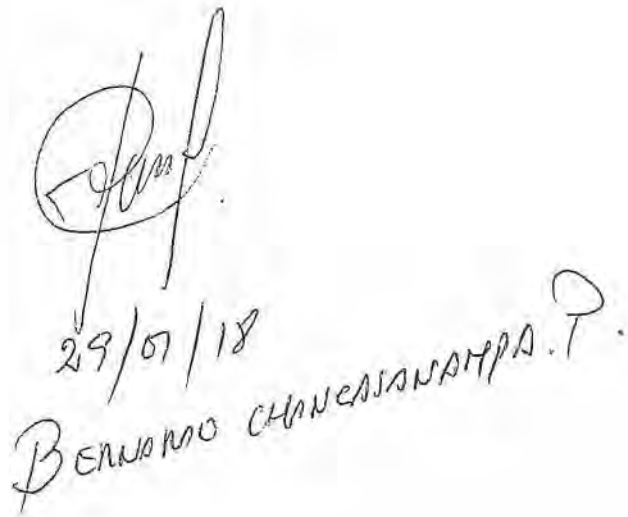 29/01/18
BERNARDO CHANCASANAMPA. P.